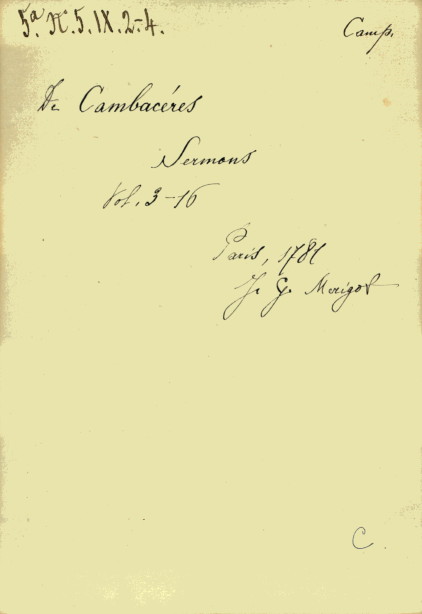 5ª. N. 5. IX. 2-4.
Camp.
De Cambacéres
Sermons
Vol. 3-16
Paris, 1781
J. G. Merigot
C